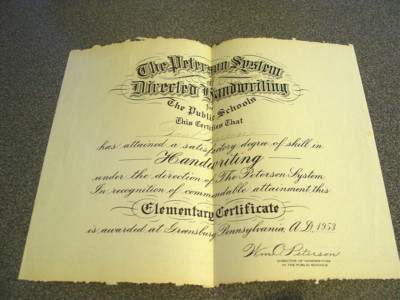 The Peterson System
Directed Handwriting
for
The Public Schools
This Certifies That
has attained a satisfactory degree of skill in
Handwriting
under the direction of The Peterson System
In recognition of commendable attainment this
Elementary Certificate
is awarded at Greensburg Pennsylvania, A.D. 1953
Wm O. Peterson
DIRECTOR OF HANDWRITING
IN THE PUBLIC SCHOOLS